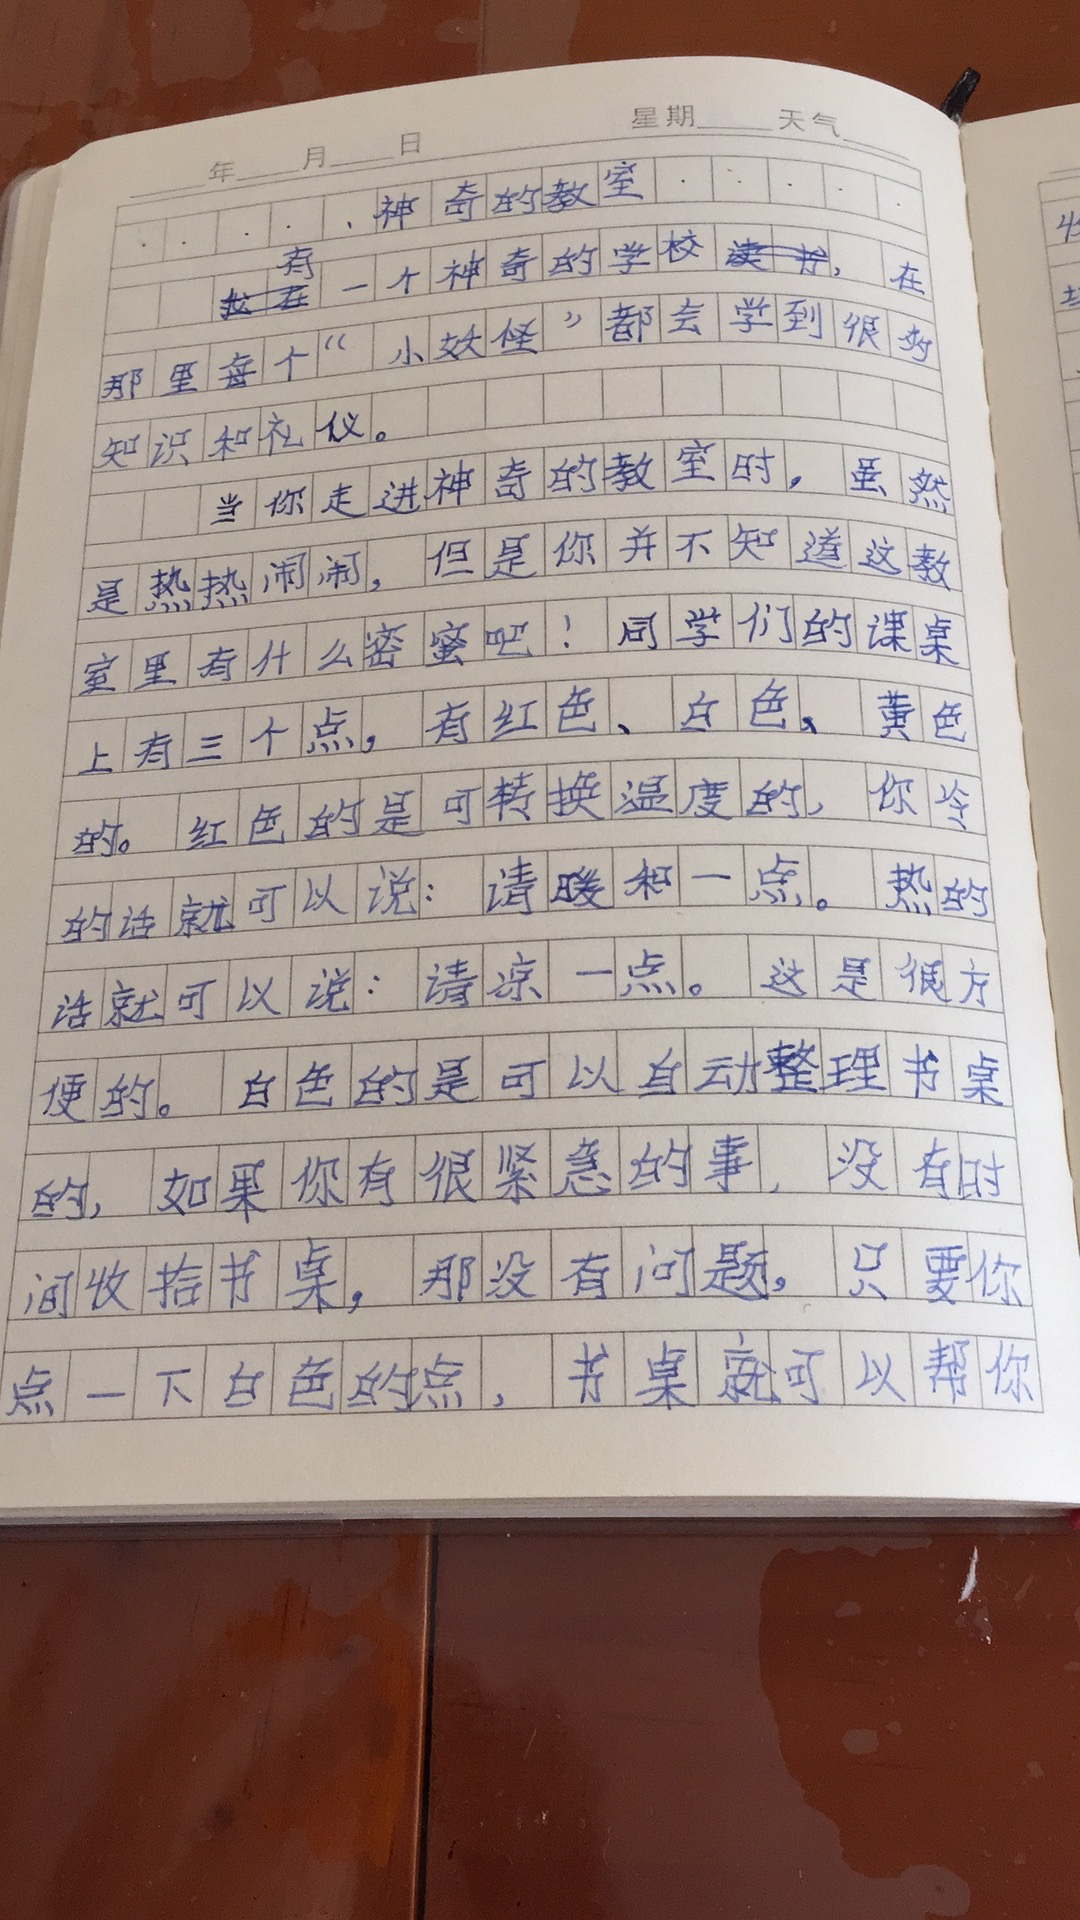 年 月 日 星期 天气
神奇的教室
有一个神奇的学校，在
那里每个“小妖怪”都会学到很多
知识和礼仪。
当你走进神奇的教室时，虽然
是热热闹闹，但是你并不知道这教
室里有什么密蜜吧！同学们的课桌
上有三个点，有红色、白色、黄色
的。红色的是可转换温度的，你冷
的话就可以说：请暖和一点。热的
话就可以说：请凉一点。这是很方
便的。白色的是可以自动整理书桌
的，如果你有很紧急的事，没有时
间收拾书桌，那没有问题，只要你
点一下白色的点，书桌就可以帮你